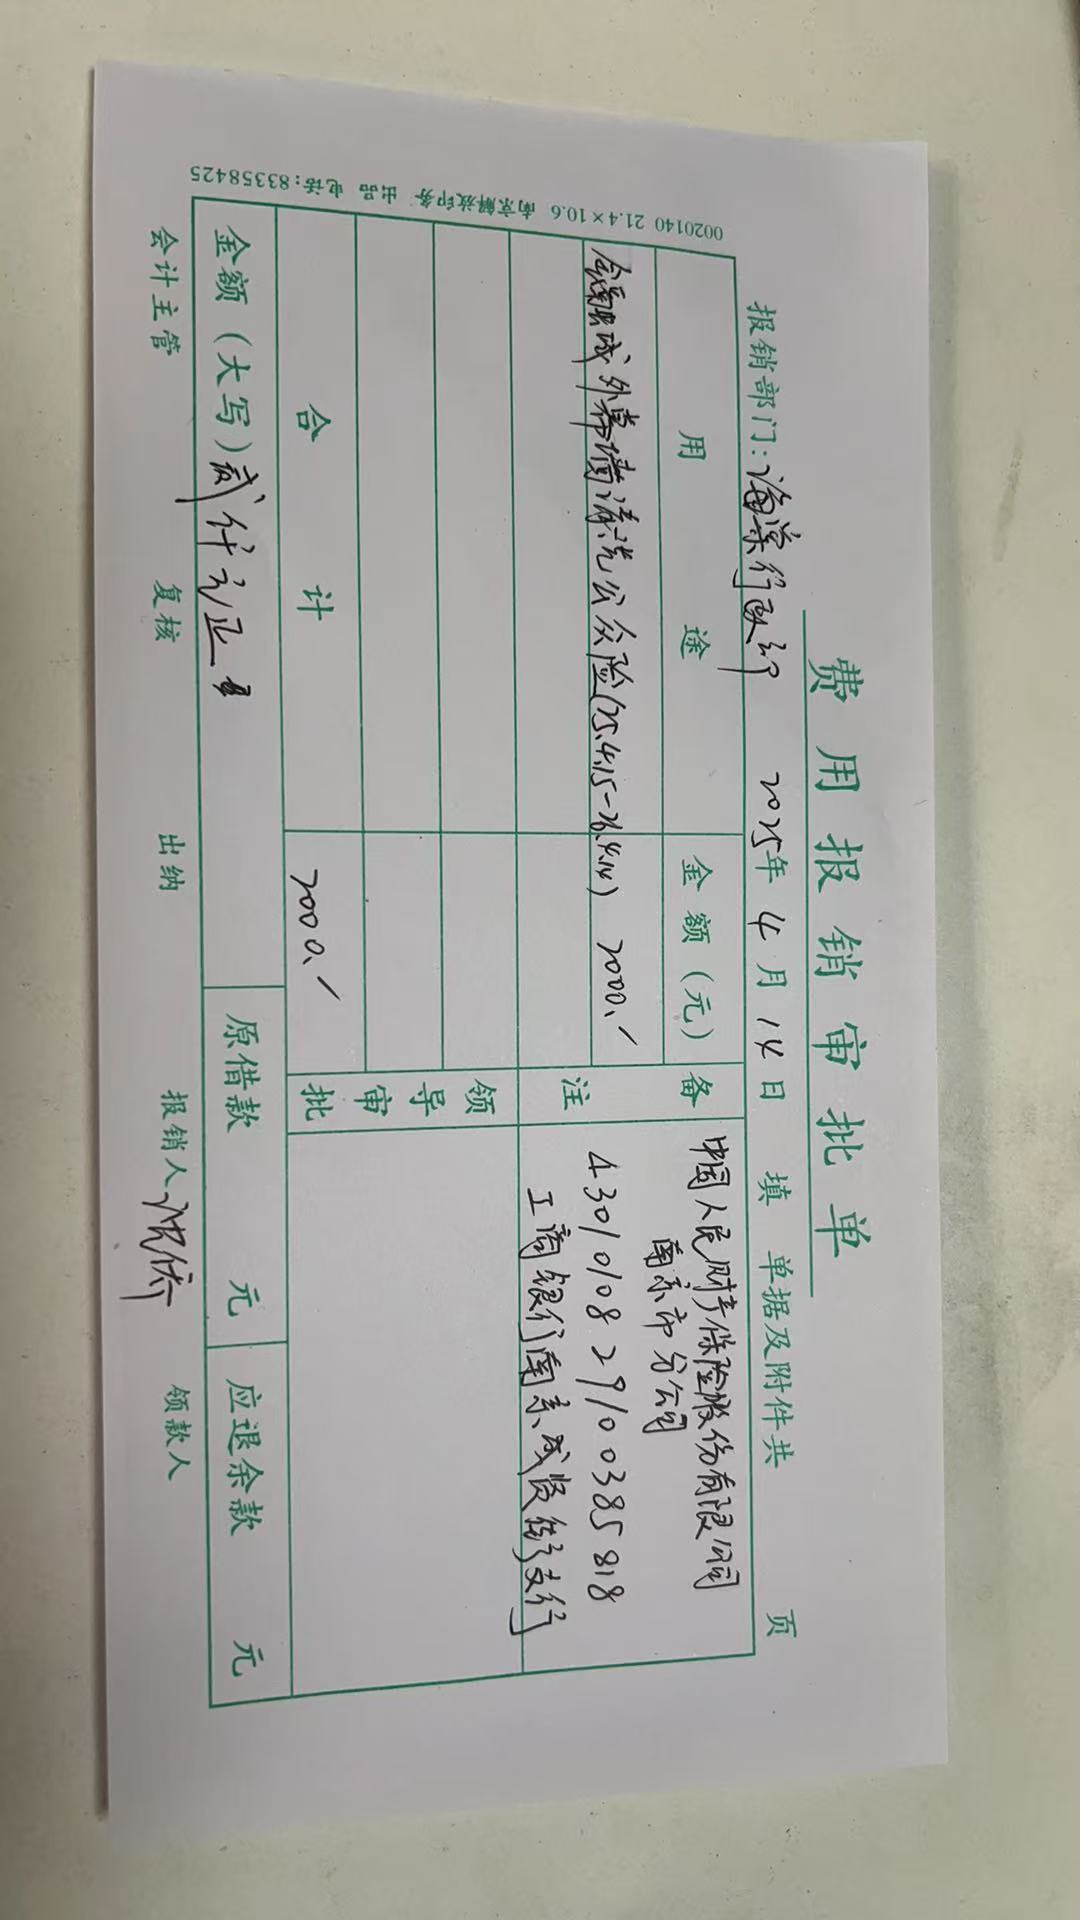 费用报销审批单
报销部门：海棠行政部 2025年4月14日 填 单据及附件共 页
用途 金额（元） 备注
金融城外幕墙清洗公众险(25.4.15-26.4.14) 2000.
中国人民财产保险股份有限公司
南京市分公司
4301010829100385818
工商银行南京成贤街支行
领导审批
合计 2000.
金额（大写）贰仟元正 原借款 元 应退余款 元
会计主管 复核 出纳 报销人 领款人
0020140 21.4×10.6 南京解放印务 出品 电话：83358425